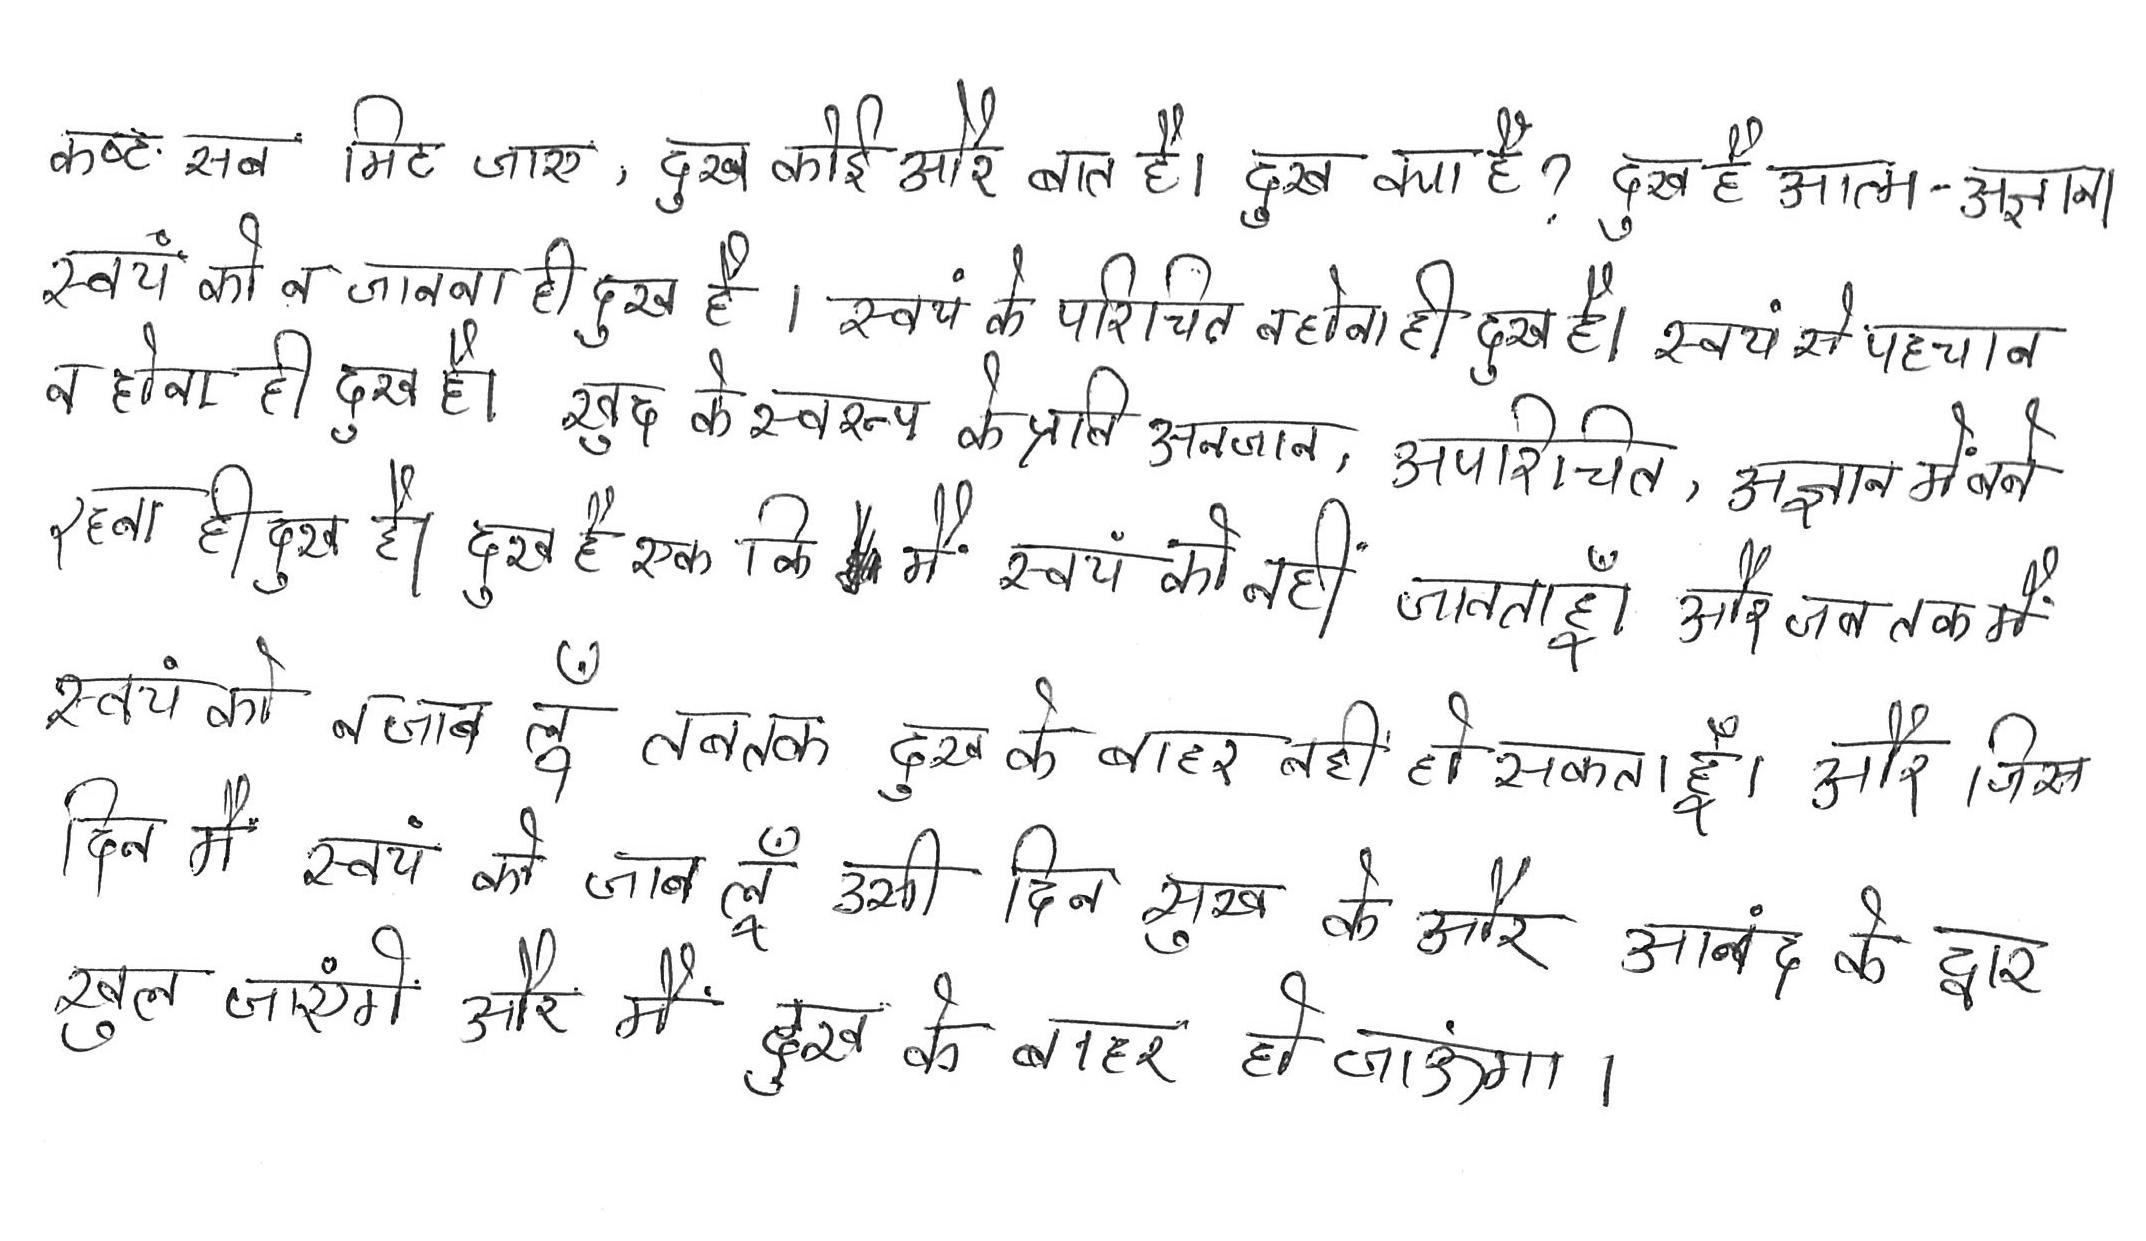 कष्ट सब मिट जाए, दुख कोई और बात है। दुख क्या है? दुख है आत्म-अज्ञान।
स्वयं को न जानना ही दुख है। स्वयं के परिचित न होना ही दुख है। स्वयं से पहचान
न होना ही दुख है। खुद के स्वरूप के प्रति अनजान, अपरिचित, अज्ञान में बने
रहना ही दुख है। दुख है एक कि मैं स्वयं को नहीं जानता हूँ। और जब तक मैं
स्वयं को न जान लूँ तबतक दुख के बाहर नहीं हो सकता हूँ। और जिस
दिन मैं स्वयं को जान लूँ उसी दिन सुख के और आनंद के द्वार
खुल जाएंगे और मैं दुख के बाहर हो जाऊंगा।